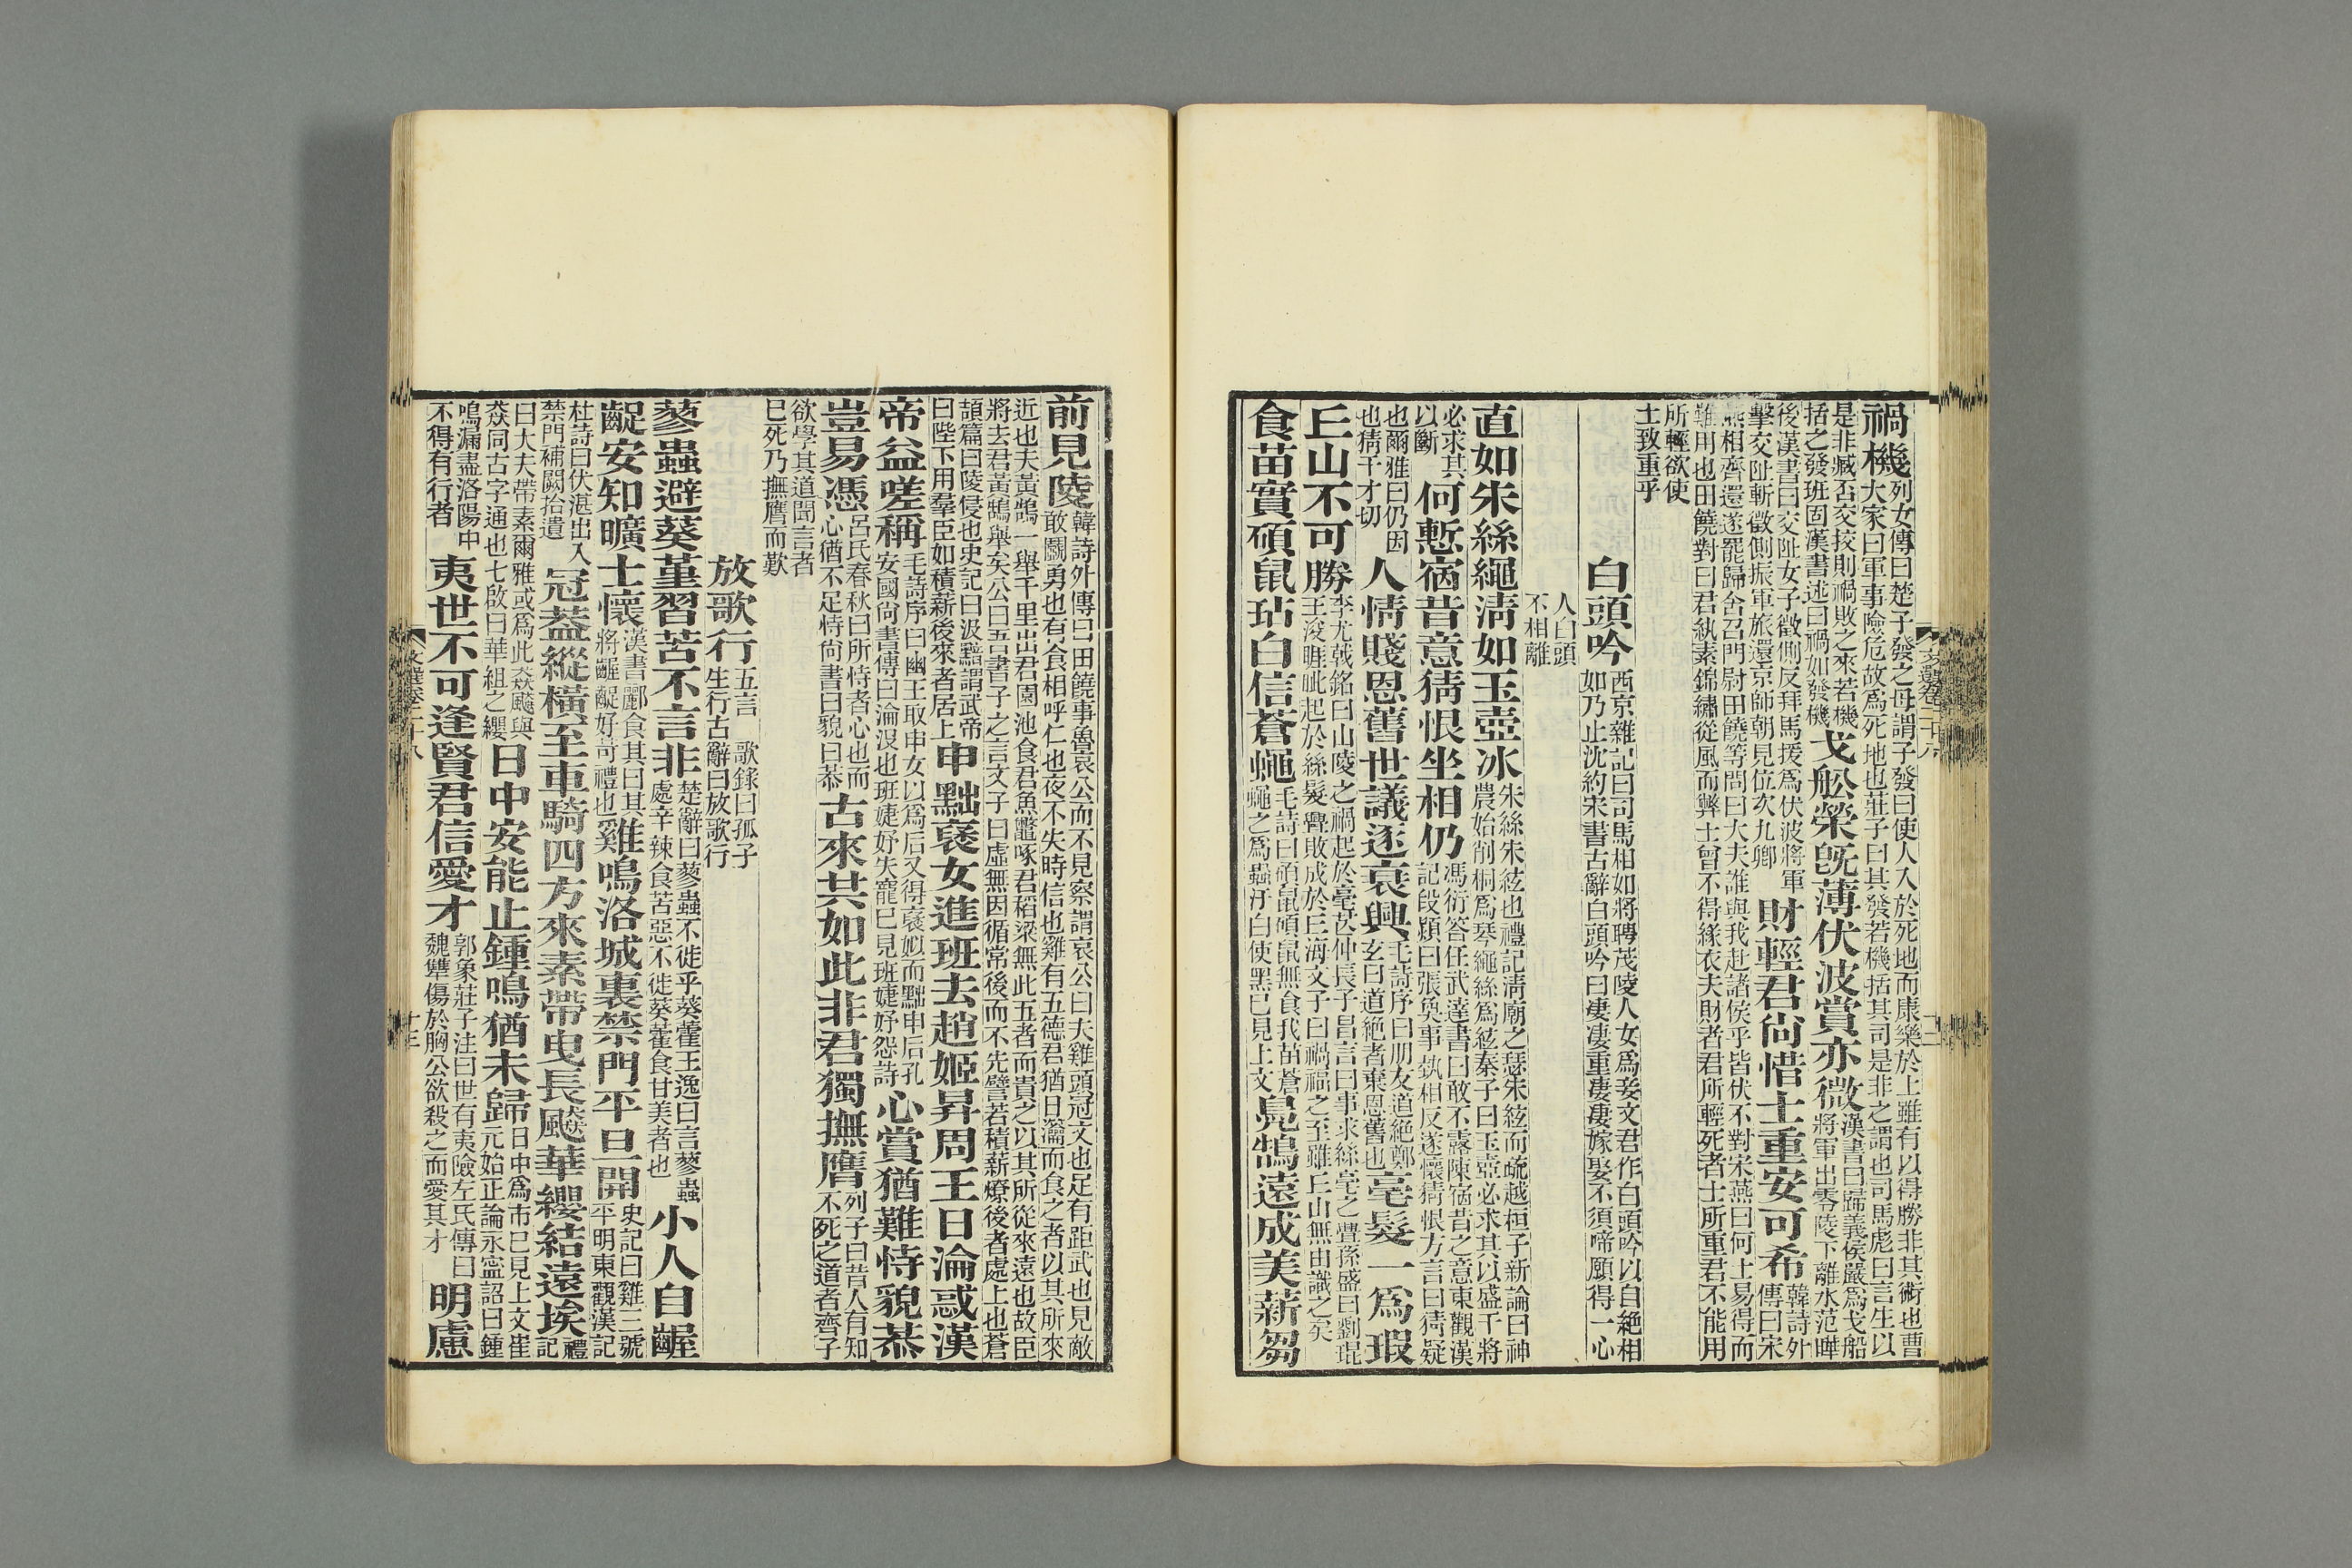 禍機列女傳曰楚子發之母謂子發曰使人入於死地而康樂於上雖有以得勝非其術也曹大家曰軍事險危故爲死地也莊子曰其發若機括其司是非之謂也司馬彪曰言生以
是非臧否交接則禍敗之來若機括之發班固漢書述曰禍如發機戈舩榮旣薄伏波賞亦微漢書曰歸義侯嚴爲戈船將軍出零陵下離水范曄
後漢書曰交阯女子徵側反拜馬援爲伏波將軍擊交阯斬徵側振軍旅還京師朝見位次九卿財輕君尙惜士重安可希韓詩外傳曰宋
燕相齊還遂罷歸舍召門尉田饒等問曰大夫誰與我赴諸侯乎皆伏不對宋燕曰何士易得而難用也田饒對曰君紈素錦繡從風而弊士曾不得緣衣夫財者君所輕死者士所重君不能用
所輕欲使士致重乎
白頭吟西京雜記曰司馬相如將聘茂陵人女爲妾文君作白頭吟以自絶相如乃止沈約宋書古辭白頭吟曰凄凄重凄凄嫁娶不須啼願得一心
人白頭不相離
直如朱絲繩淸如玉壺冰朱絲朱絃也禮記淸廟之瑟朱絃而疏越桓子新論曰神農始削桐爲琴繩絲爲絃秦子曰玉壺必求其以盛干將
必求其以斷何慙宿昔意猜恨坐相仍馮衍答任武達書曰敢不露陳宿昔之意東觀漢記段熲曰張奐事埶相反遂懷猜恨方言曰猜疑
也爾雅曰仍因也猜千才切人情賤恩舊世議逐衰興毛詩序曰朋友道絶鄭玄曰道絶者棄恩舊也毫髮一爲瑕
丘山不可勝李尤戟銘曰山陵之禍起於毫芒仲長子昌言曰事求絲毫之釁孫盛曰劉琨王浚睚眦起於絲髮釁敗成於丘海文子曰禍福之至雖丘山無由識之矣
食苗實碩鼠玷白信蒼蠅毛詩曰碩鼠碩鼠無食我苗蒼蠅之爲蟲汙白使黑已見上文鳧鵠遠成美薪芻
前見陵韓詩外傳曰田饒事魯哀公而不見察謂哀公曰夫雞頭冠文也足有距武也見敵敢鬭勇也有食相呼仁也夜不失時信也雞有五德君猶日瀹而食之者以其所來
近也夫黃鵠一舉千里出君園池食君魚鼈啄君稻粱無此五者而貴之以其所從來遠也故臣將去君黃鵠舉矣公曰吾書子之言文子曰虛無因循常後而不先譬若積薪燎後者處上也蒼
頡篇曰陵侵也史記曰汲黯謂武帝曰陛下用羣臣如積薪後來者居上申黜襃女進班去趙姬昇周王日淪惑漢
帝益嗟稱毛詩序曰幽王取申女以爲后又得襃姒而黜申后孔安國尙書傳曰淪沒也班婕妤失寵已見班婕妤怨詩心賞猶難恃貌恭
豈易憑呂氏春秋曰所恃者心也而心猶不足恃尙書曰貌曰恭古來共如此非君獨撫膺列子曰昔人有知不死之道者齊子
欲學其道聞言者已死乃撫膺而歎
放歌行五言 歌錄曰孤子生行古辭曰放歌行
蓼蟲避葵堇習苦不言非楚辭曰蓼蟲不徙乎葵藿王逸曰言蓼蟲處辛辣食苦惡不徙葵藿食甘美者也小人自齷
齪安知曠士懷漢書酈食其曰其將齷齪好苛禮也雞鳴洛城裏禁門平旦開史記曰雞三號平明東觀漢記
杜詩曰伏湛出入禁門補闕拾遺冠蓋縱橫至車騎四方來素帶曳長飈華纓結遠埃禮記
曰大夫帶素爾雅或爲此猋飈與猋同古字通也七啟曰華組之纓日中安能止鍾鳴猶未歸日中爲市已見上文崔元始正論永寍詔曰鍾
鳴漏盡洛陽中不得有行者夷世不可逢賢君信愛才郭象莊子注曰世有夷險左氏傳曰魏犨傷於胸公欲殺之而愛其才明慮
文選卷二十八
十三